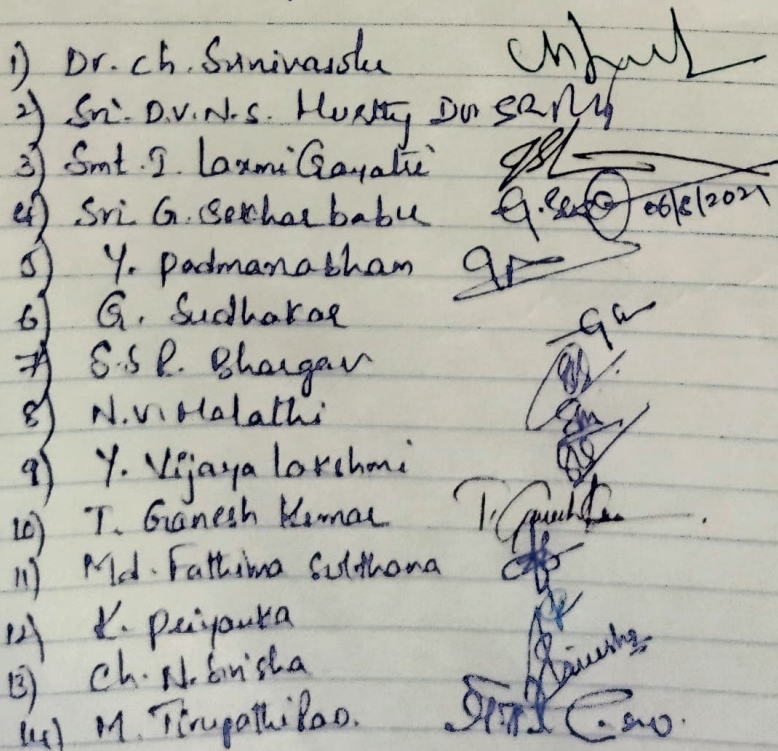 1) Dr. Ch. Srinivasulu
2) Sri. D.V.N.S. Murthy
3) Smt. I. Laxmi Gayatri
4) Sri G. Sekhar babu G. 06/8/2021
5) Y. Padmanabham
6) G. Sudhakar
7) S.S.R. Bhargav
8) N.V. Malathi
9) Y. Vijaya lakshmi
10) T. Ganesh Kumar T. Ganesh
11) Md. Fathima Sulthana
12) K. Priyanka
13) Ch. N. Sirisha
14) M. Tirupathi Rao.